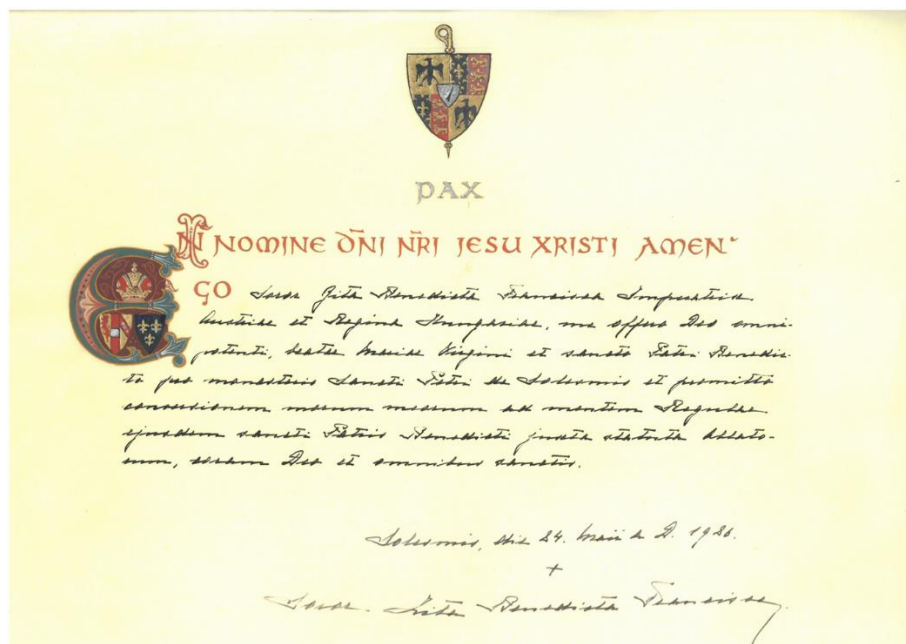 PAX
IN NOMINE DÑI NRĪ JESU XRISTI AMEN
EGO Soror Zita Benedicta Francisca Imperatrix
Austriae et Regina Hungariae, me offero Deo omni-
potenti, beatae Mariae Virgini et sancto Patri Benedic-
to pro monasterio Sancti Petri de Solesmis et promitto
conversionem morum meorum ad mentem Regulae
ejusdem sancti Patris Benedicti juxta statuta Oblato-
rum, coram Deo et omnibus sanctis.
Solesmis, die 24. Maii a D. 1926.
+
Soror Zita Benedicta Francisca